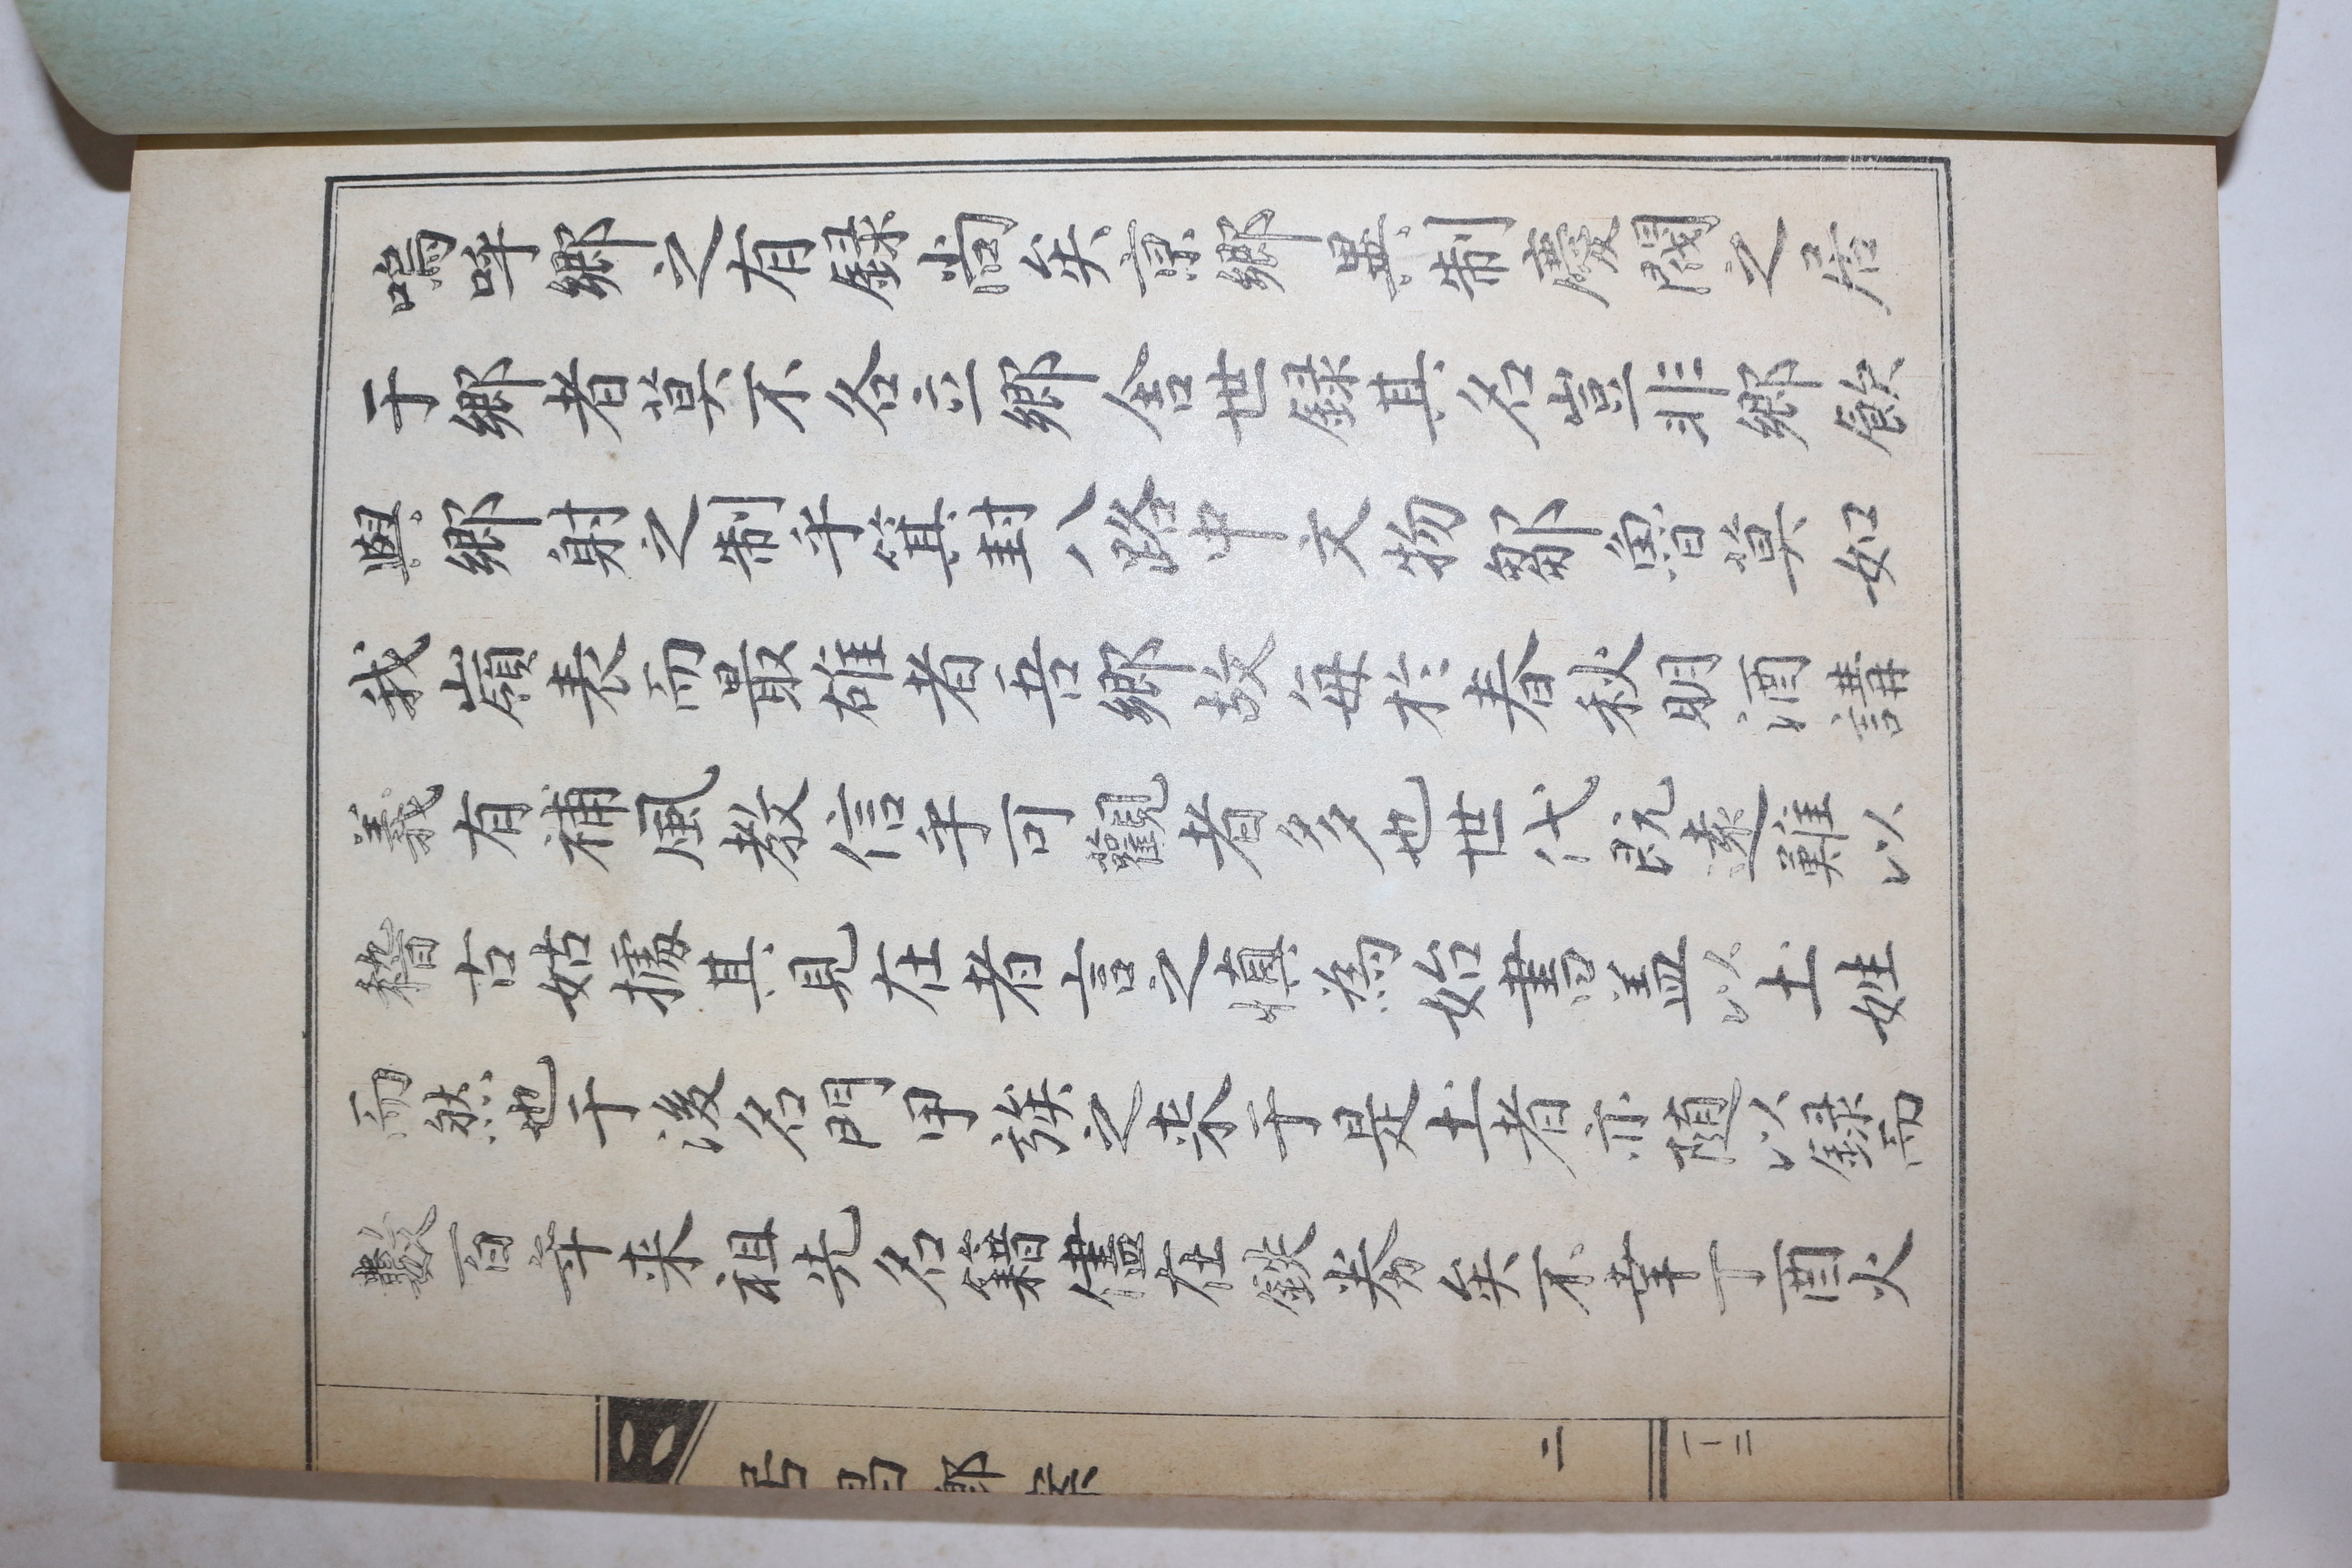 嗚呼鄉之有録尚矣京鄉異制慶閥之居
于鄉者莫不各立鄉舍世録其名豈非鄉飮
與鄉射之制乎箕封八路中文物鄒魯莫如
我嶺表而最雄者吾鄉故每於春秋明酒講
義有補風教信乎可觀者多也世代既遠難以
稽古姑據其見在者言之慎為始書盖以土姓
而然也于後名門甲族之来于是土者亦随以録而
數百年来祖先名籍儘在鉄券矣不幸丁酉火
居昌鄉案
二
一—二